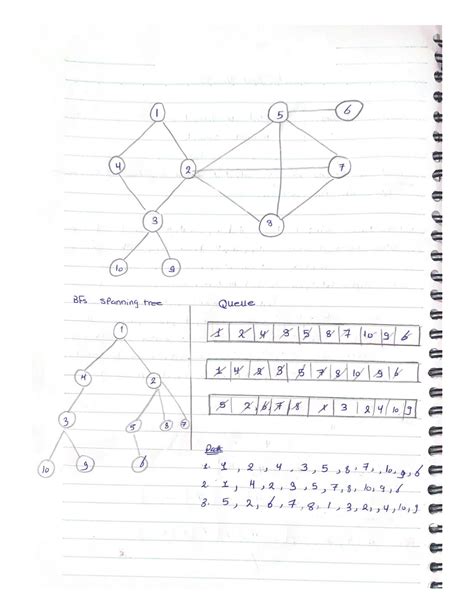 1 5 6
4 2 7
3 8
10 9
BFS spanning tree
Queue
1
4 2
3 5 8 7
10 9 6
1 2 4 3 5 8 7 10 9 6
1 4 2 3 5 7 8 10 9 6
5 2 6 7 8 1 3 2 4 10 9
1. 1, 2, 4, 3, 5, 8, 7, 10, 9, 6
2. 1, 4, 2, 9, 5, 7, 8, 10, 9, 6
3. 5, 2, 6, 7, 8, 1, 3, 2, 4, 10, 9